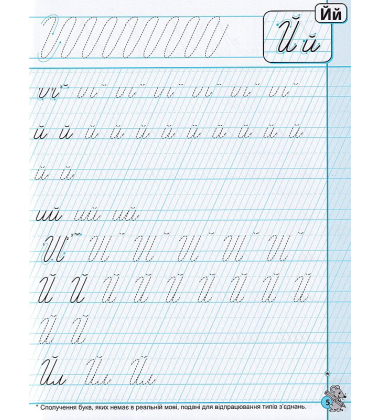 Йй
Й й
й й й й й й й й й й й
й й
ий ий ий
Й Й Й Й Й Й Й Й Й
Й Й
Йл Йл Йл
* Сполучення букв, яких немає в реальній мові, подані для відпрацювання типів з'єднань.
5